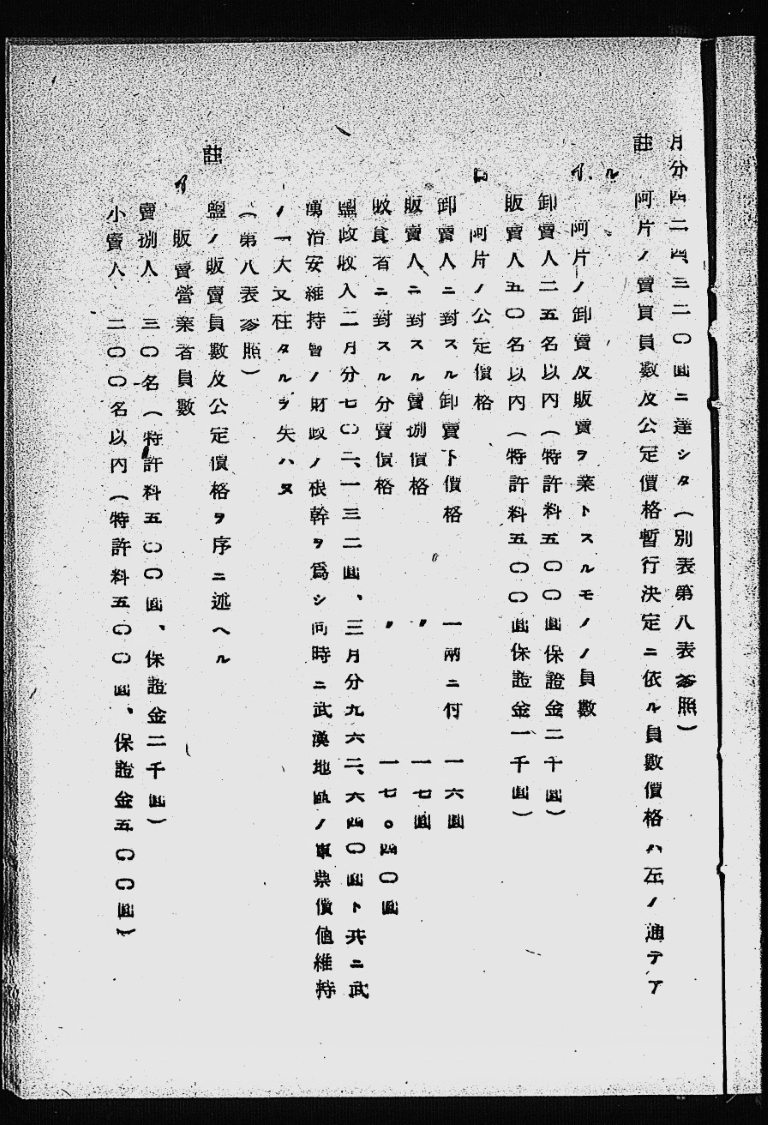 月分四二四、三二〇圓ニ達シタ（別表第八表參照）
註　阿片ノ賣買員數及公定價格暫行決定ニ依ル員數價格ハ左ノ通デア
ル
イ、阿片ノ卸賣及販賣ヲ業トスルモノノ員數
卸賣人二五名以內（特許料五〇〇圓保證金二千圓）
販賣人五〇名以內（特許料五〇〇圓保證金一千圓）
ロ　阿片ノ公定價格
卸賣人ニ對スル卸賣下價格　一兩ニ付　一六圓
販賣人ニ對スル賣捌價格　〃　一七圓
吸食者ニ對スル分賣價格　〃　一七。四〇圓
鹽政收入二月分七〇二、一三二圓、三月分九六二、六四〇圓ト共ニ武
漢治安維持會ノ財政ノ根幹ヲ爲シ同時ニ武漢地區ノ軍票價値維持
ノ一大支柱タルヲ失ハヌ
（第八表參照）
註　鹽ノ販賣員數及公定價格ヲ序ニ述ヘル
イ　販賣營業者員數
賣捌人　三〇名（特許料五〇〇圓、保證金二千圓）
小賣人　二〇〇名以內（特許料五〇〇圓、保證金五〇〇圓）